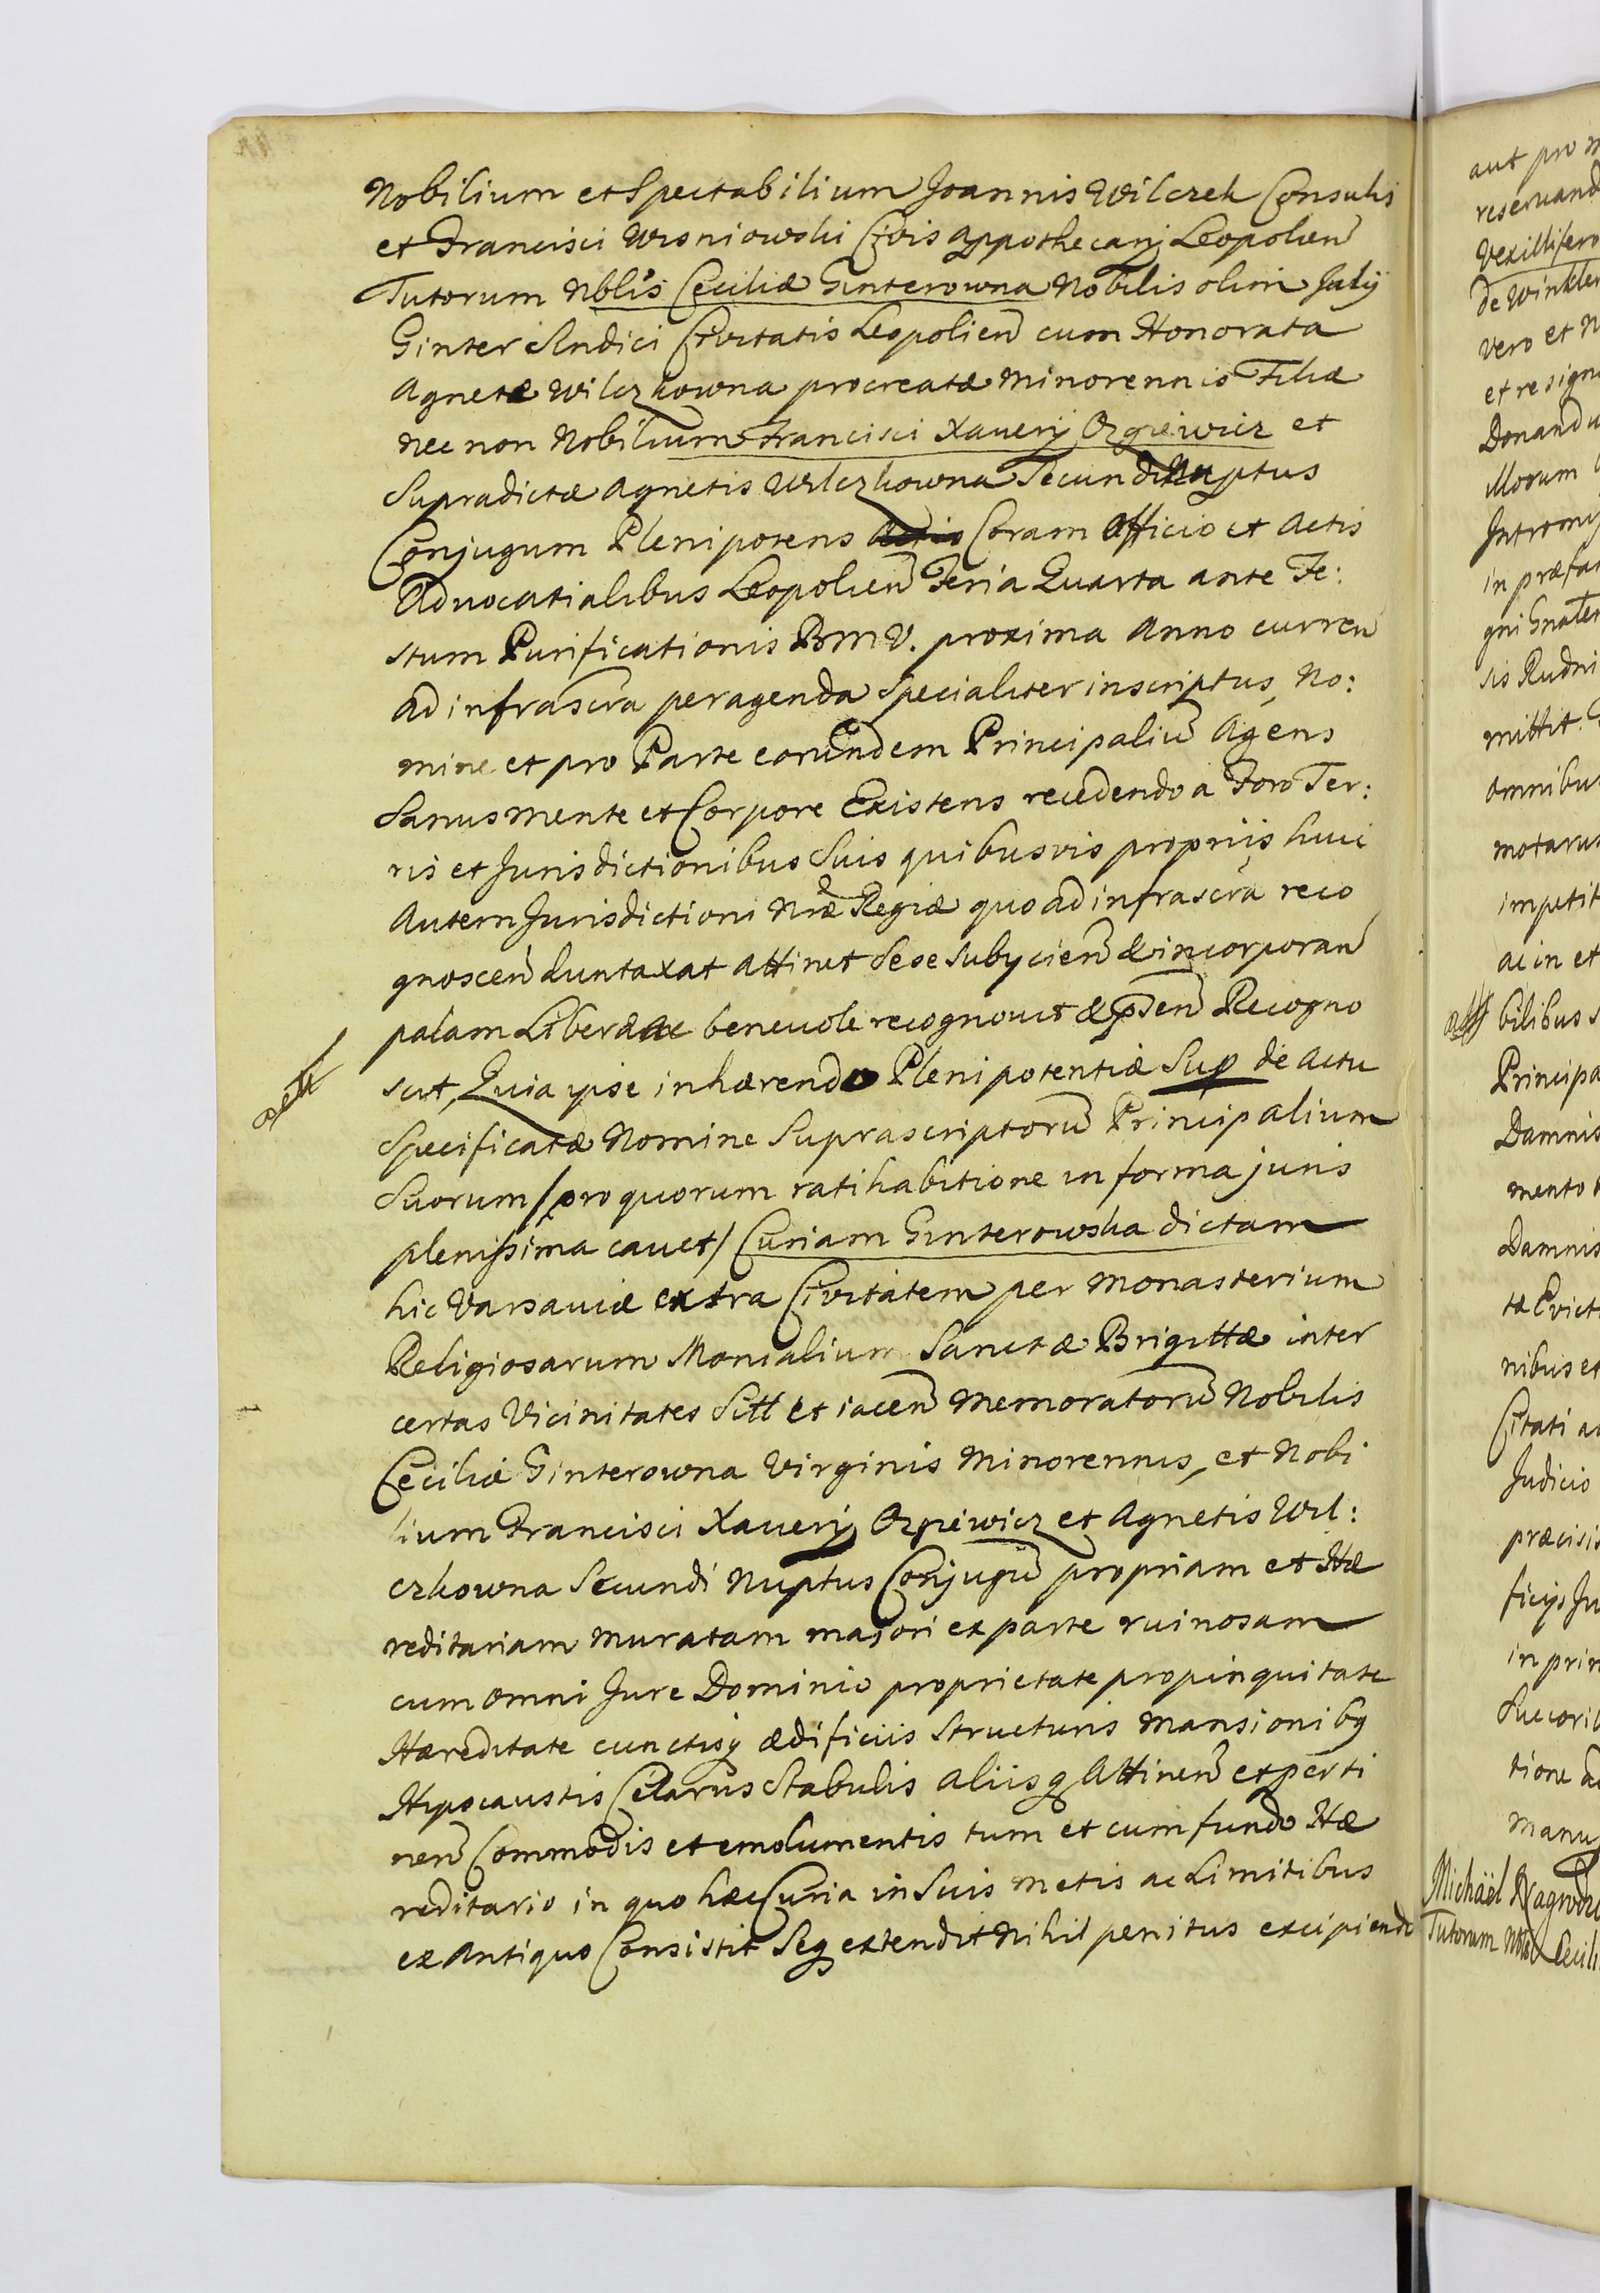 Nobilium et Spectabilium Joannis Wilczek Consulis
et Francisci Wisniowski Civis Appothecarij Leopolien
Tutorum Nblis Ceciliæ Ginterowna Nobilis olim July
Ginter Sindici Civitatis Leopolien cum Honorata
Agnete Wilczkowna procreatæ minorennis Filiæ
nec non Nobilium Francisci Xaverij Ozgiewicz et
Supradictæ Agnetis Wilczkowna Secundi Nuptus
Conjugum Plenipotens Coram Officio et Actis
Advocatialibus Leopolien Feria Quarta ante Fe:
stum Purificationis BMV. proxima Anno curren
ad infrascra peragenda Specialiter inscriptus, No:
mine et pro Parte eorundem Principaliū Agens
Sanus mente et Corpore Existens recedendo a Foro Ter:
ris et Jurisdictionibus Suis quibusvis propriis huic
Autem Jurisdictioni Nræ Regiæ quo ad infrascra reco
gnoscen duntaxat attinet Sese Subycien & incorporan
palam Libere ac benevole recognovit & psen Recogno
scit, Quia ipse inhærendo Plenipotentiæ Sup de actu
Specificatæ Nomine Suprascriptorū Principalium
Suorum / pro quorum ratihabitione in forma juris
plenissima cavet / Curiam Ginterowska dictam
hic Varsaviæ extra Civitatem per Monasterium
Religiosarum Monialium Sanctæ Brigittæ inter
certas Vicinitates Sitt et iacen Memoratorū Nobilis
Ceciliæ Ginterowna Virginis Minorennis, et Nobi
lium Francisci Xaverij Ozgiewicz et Agnetis Wil:
czkowna Secundi Nuptus Conjugū propriam et Hæ
reditariam muratam majori ex parte ruinosam
cum omni Jure Dominio proprietate propinquitate
Hæreditate cunctisq ædificiis Structuris Mansionibq
Hypocaustis Cellariis Stabulis aliisq Attinen et perti
nen Commodis et emolumentis tum et cum fundo Hæ
reditario in quo hæc Curia in Suis metis ac Limitibus
ex Antiquo Consistit Seq extendit Nihil penitus excipiendo
aut pro
reservand
Vexillifero
de Winkler
vero et N
et resign
Donandu
illorum
Intromi
in præfa
gni Gnaler
sis Rudni
mittit.
omnibus
motarum
impetit
ac in et
bilibus s
Principa
Damnis
mento
Damnis
tæ Evict
nibus et
Citati ad
Judicio
præcisis
ficijs Ju
in prin
Succorib
tione
manu
Michaël Nagrodz
Tutorum Nblis Cecili